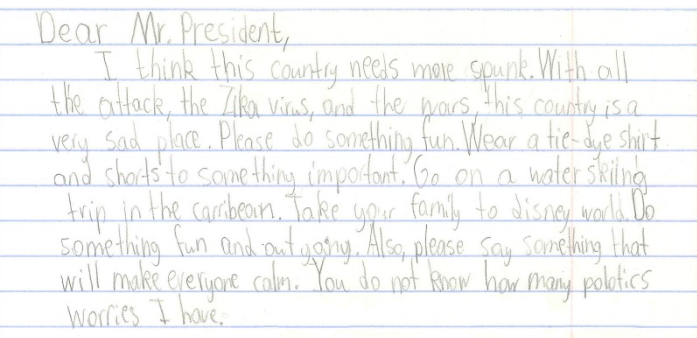 Dear Mr. President,
I think this country needs more spunk. With all
the attack, the Zika virus, and the wars, this country is a
very sad place. Please do something fun. Wear a tie-dye shirt
and shorts to something important. Go on a water skiing
trip in the carribean. Take your family to disney world. Do
something fun and outgoing. Also, please say something that
will make everyone calm. You do not know how many polotics
worries I have.